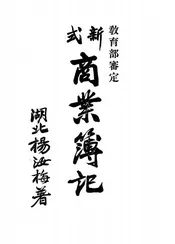 教育部審定
新式
商業簿記
湖北楊汝梅著